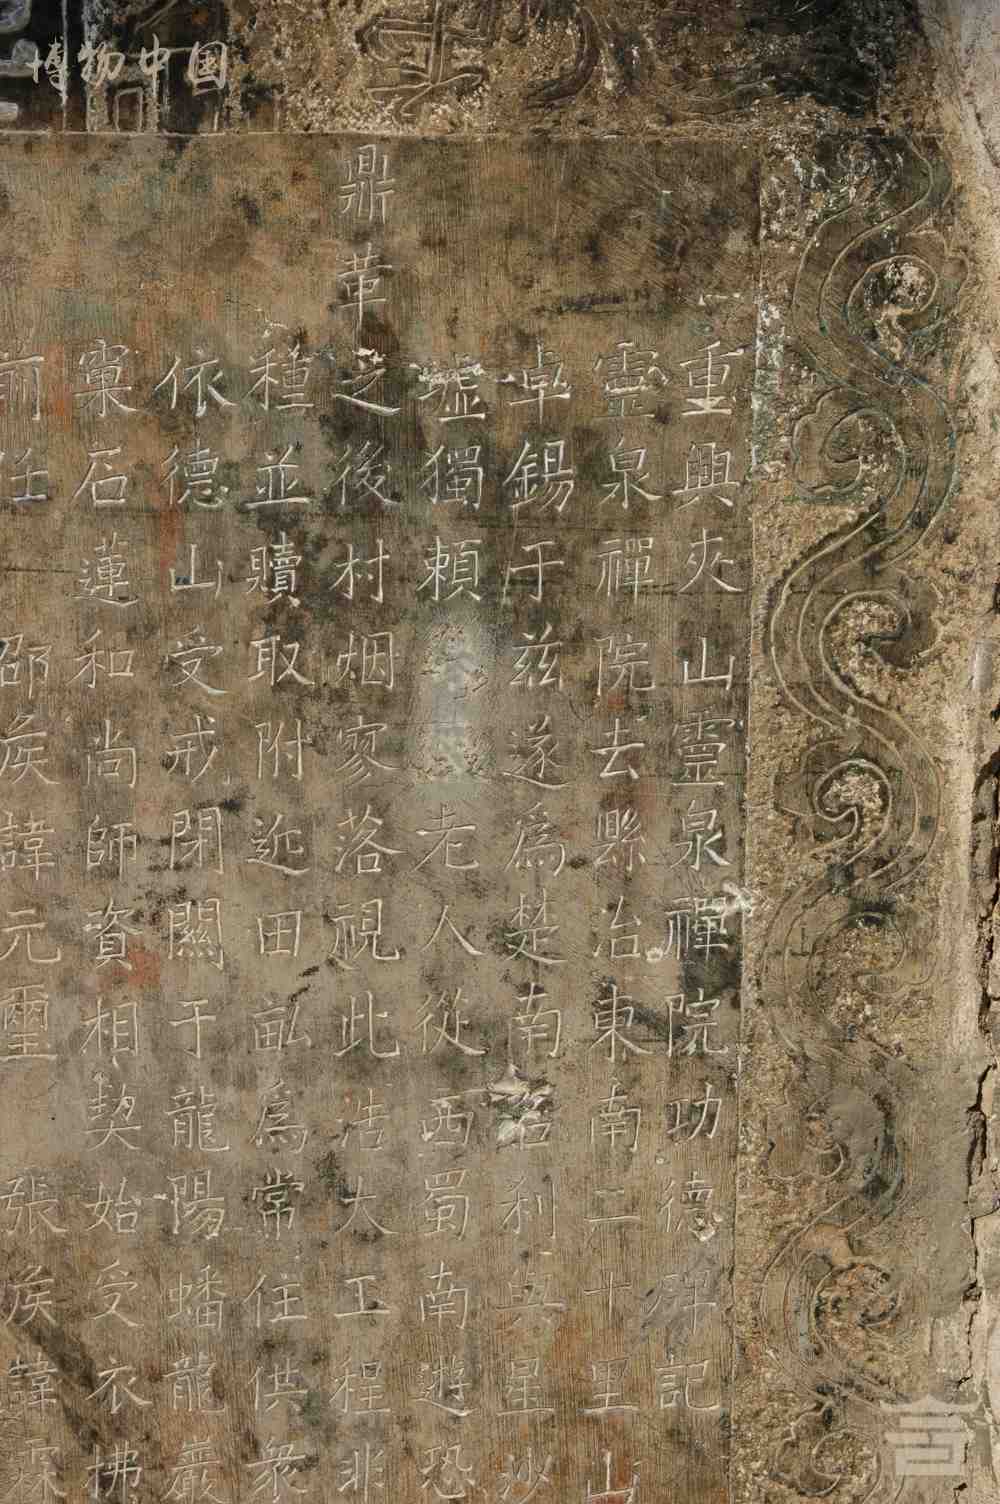 博物中国
重興夾山靈泉禪院功德碑記
靈泉禪院去縣治東南二十里山
卓錫于茲遂爲楚南名刹與星沙
墟獨賴老人從西蜀南遊恐
鼎革之後村烟寥落視此浩大工程非
種並贖取附近田畝爲常住供衆
依德山受戒閉關于龍陽蟠龍巖
窠石蓮和尚師資相契始受衣拂
前任邵侯諱元璽張侯諱霖